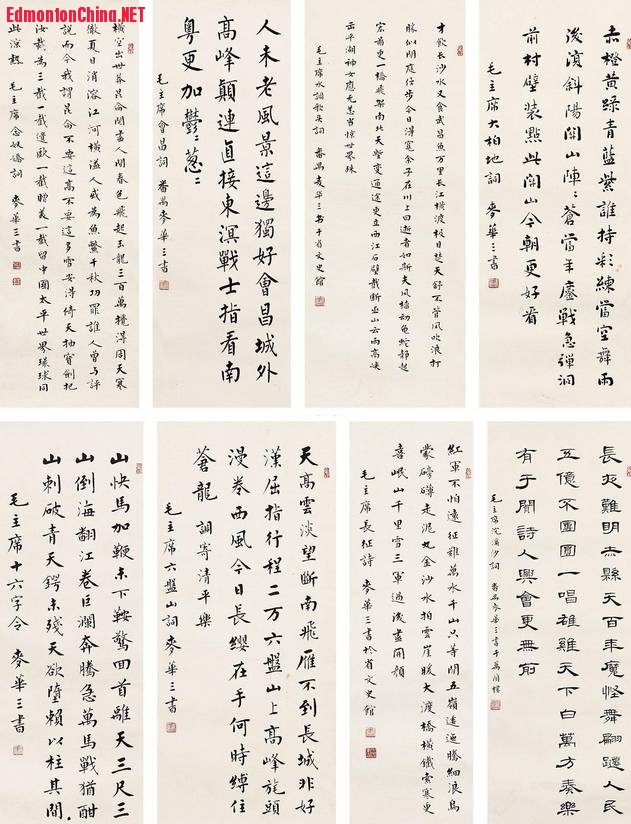 EdmontonChina.NET
赤橙黃綠青藍紫誰持彩練當空舞雨
後復斜陽關山陣〻蒼當年鏖戰急彈洞
前村壁裝點此關山今朝更好看
毛主席大柏地詞 麥華三書
才飲长沙水又食武昌魚万里长江橫渡极目楚天舒不管风吹浪打
勝似閒庭信步今日得寬余子在川上曰逝者如斯夫风樯动龟蛇静起
宏圖更一橋飞架南北天塹变通途更立西江石壁截断巫山云雨高峽
出平湖神女應无恙当惊世界殊
毛主席水調歌头詞 番禺麦华三书于省文史館
人未老風景這邊獨好會昌城外
高峰顛連直接東溟戰士指看南
粵更加鬱〻蔥〻
毛主席會昌詞 番禺麥華三書
橫空出世莽昆侖閱盡人間春色飛起玉龍三百萬攪得周天寒
徹夏日消溶江河橫溢人或為魚鱉千秋功罪誰人曾與評
說而今我謂昆侖不要這高不要這多雪安得倚天抽寶劍把
汝裁為三截一截遺歐一截贈美一截留中國太平世界環球同
此涼熱 毛主席念奴嬌詞 麥華三書
長夜難明赤縣天百年魔怪舞翩躚人民
五億不團圓一唱雄雞天下白萬方奏樂
有于闐詩人興會更無前
毛主席浣溪沙詞 番禺麥華三書于
紅軍不怕遠征難萬水千山只等閒五嶺逶迤騰細浪烏
蒙磅礴走泥丸金沙水拍雲崖暖大渡橋橫鐵索寒更
喜岷山千里雪三軍過後盡開顏
毛主席長征詩 麥華三書於省文史館
天高雲淡望斷南飛雁不到長城非好
漢屈指行程二万六盤山上高峰旄頭
漫卷西風今日長纓在手何時縛住
蒼龍 調寄清平樂
毛主席六盤山詞 麥華三書
山快馬加鞭未下鞍驚回首離天三尺三
山倒海翻江卷巨瀾奔騰急萬馬戰猶酣
山刺破青天鍔未殘天欲墮賴以柱其間
毛主席十六字令 麥華三書